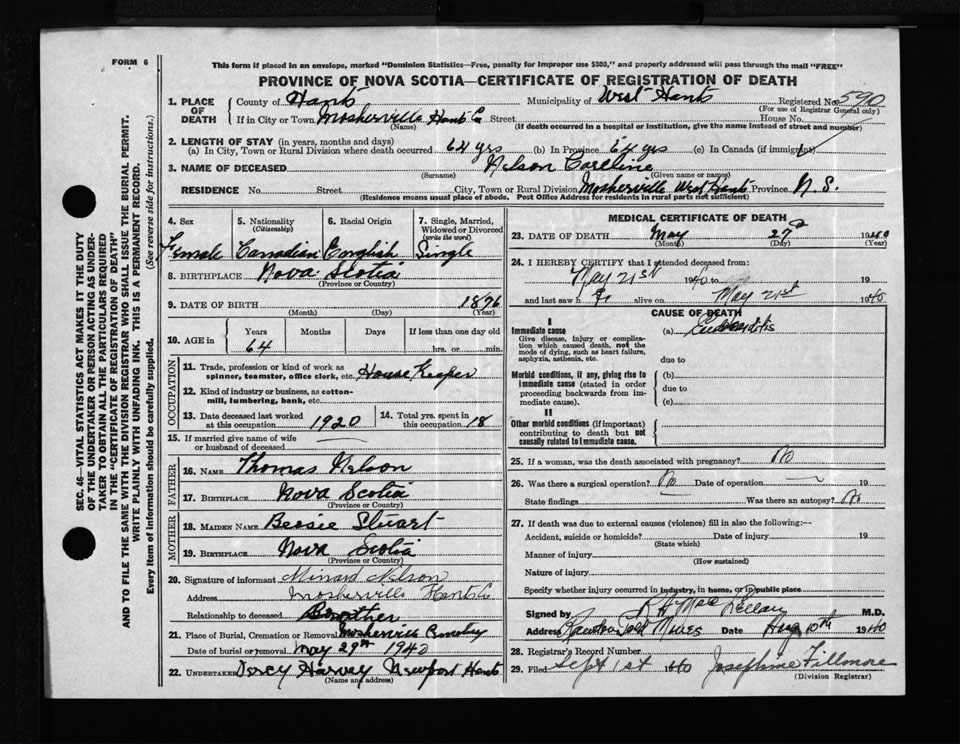 FORM 6
This form if placed in an envelope, marked "Dominion Statistics—Free, penalty for improper use $300," and properly addressed will pass through the mail "FREE"
PROVINCE OF NOVA SCOTIA—CERTIFICATE OF REGISTRATION OF DEATH
1. PLACE OF DEATH County of Hants Municipality of West Hants Registered No. 590
(For use of Registrar General only)
If in City or Town Mosherville Hants Co Street House No.
(Name) (If death occurred in a hospital or institution, give the name instead of street and number)
2. LENGTH OF STAY (in years, months and days)
(a) In City, Town or Rural Division where death occurred 64 yrs (b) In Province 64 yrs (c) In Canada (if immigrant)
3. NAME OF DECEASED Nelson
(Surname) (Given name or names)
RESIDENCE No. Street City, Town or Rural Division Mosherville West Hants Province N.S.
(Residence means usual place of abode. Post Office Address for residents in rural parts not sufficient)
SEC. 46—VITAL STATISTICS ACT MAKES IT THE DUTY
OF THE UNDERTAKER OR PERSON ACTING AS UNDER-
TAKER TO OBTAIN ALL THE PARTICULARS REQUIRED
IN THE "CERTIFICATE OF REGISTRATION OF DEATH"
AND TO FILE THE SAME WITH THE DIVISION REGISTRAR WHO SHALL ISSUE THE BURIAL PERMIT.
WRITE PLAINLY WITH UNFADING INK. THIS IS A PERMANENT RECORD.
Every item of information should be carefully supplied. (See reverse side for instructions.)
4. Sex 5. Nationality 6. Racial Origin 7. Single, Married,
(Citizenship) Widowed or Divorced
(write the word)
Female Canadian English Single
8. BIRTHPLACE Nova Scotia
(Province or Country)
9. DATE OF BIRTH 1876
(Month) (Day) (Year)
10. AGE in Years Months Days If less than one day old
64 hrs. or min.
OCCUPATION
11. Trade, profession or kind of work as
spinner, teamster, office clerk, etc. House Keeper
12. Kind of industry or business, as cotton-
mill, lumbering, bank, etc.
13. Date deceased last worked
at this occupation 1920
14. Total yrs. spent in
this occupation 18
15. If married give name of wife
or husband of deceased
FATHER
16. NAME Thomas Nelson
17. BIRTHPLACE Nova Scotia
(Province or Country)
MOTHER
18. MAIDEN NAME Bessie Stuart
19. BIRTHPLACE Nova Scotia
(Province or Country)
20. Signature of informant Minard Nelson
Address Mosherville Hants Co
Relationship to deceased Brother
21. Place of Burial, Cremation or Removal Mosherville Cemetery
Date of burial or removal May 29th 1940
22. UNDERTAKER Percy Harvey Newport Hants
(Name and address)
MEDICAL CERTIFICATE OF DEATH
23. DATE OF DEATH May 27 1940
(Month) (Day) (Year)
24. I HEREBY CERTIFY that I attended deceased from:
May 21st 1940 to 19
and last saw h alive on May 21st 1940
CAUSE OF DEATH
I
Immediate cause (a)
Give disease, injury or complica-
tion which caused death, not the
mode of dying, such as heart failure,
asphyxia, asthenia, etc. due to
Morbid conditions, if any, giving rise to (b)
immediate cause (stated in order due to
proceeding backwards from im-
mediate cause). (c)
II
Other morbid conditions (if important)
contributing to death but not
causally related to immediate cause.
25. If a woman, was the death associated with pregnancy? No
26. Was there a surgical operation? No Date of operation
State findings Was there an autopsy? No
27. If death was due to external causes (violence) fill in also the following:—
Accident, suicide or homicide? Date of injury 19
(State which)
Manner of injury
(How sustained)
Nature of injury
Specify whether injury occurred in industry, in home, or in public place
Signed by M.D.
Address Rawdon Gold Mines Date Aug 10th 1940
28. Registrar's Record Number
29. Filed Sept 1st 1940 Josephine Fillmore
(Division Registrar)